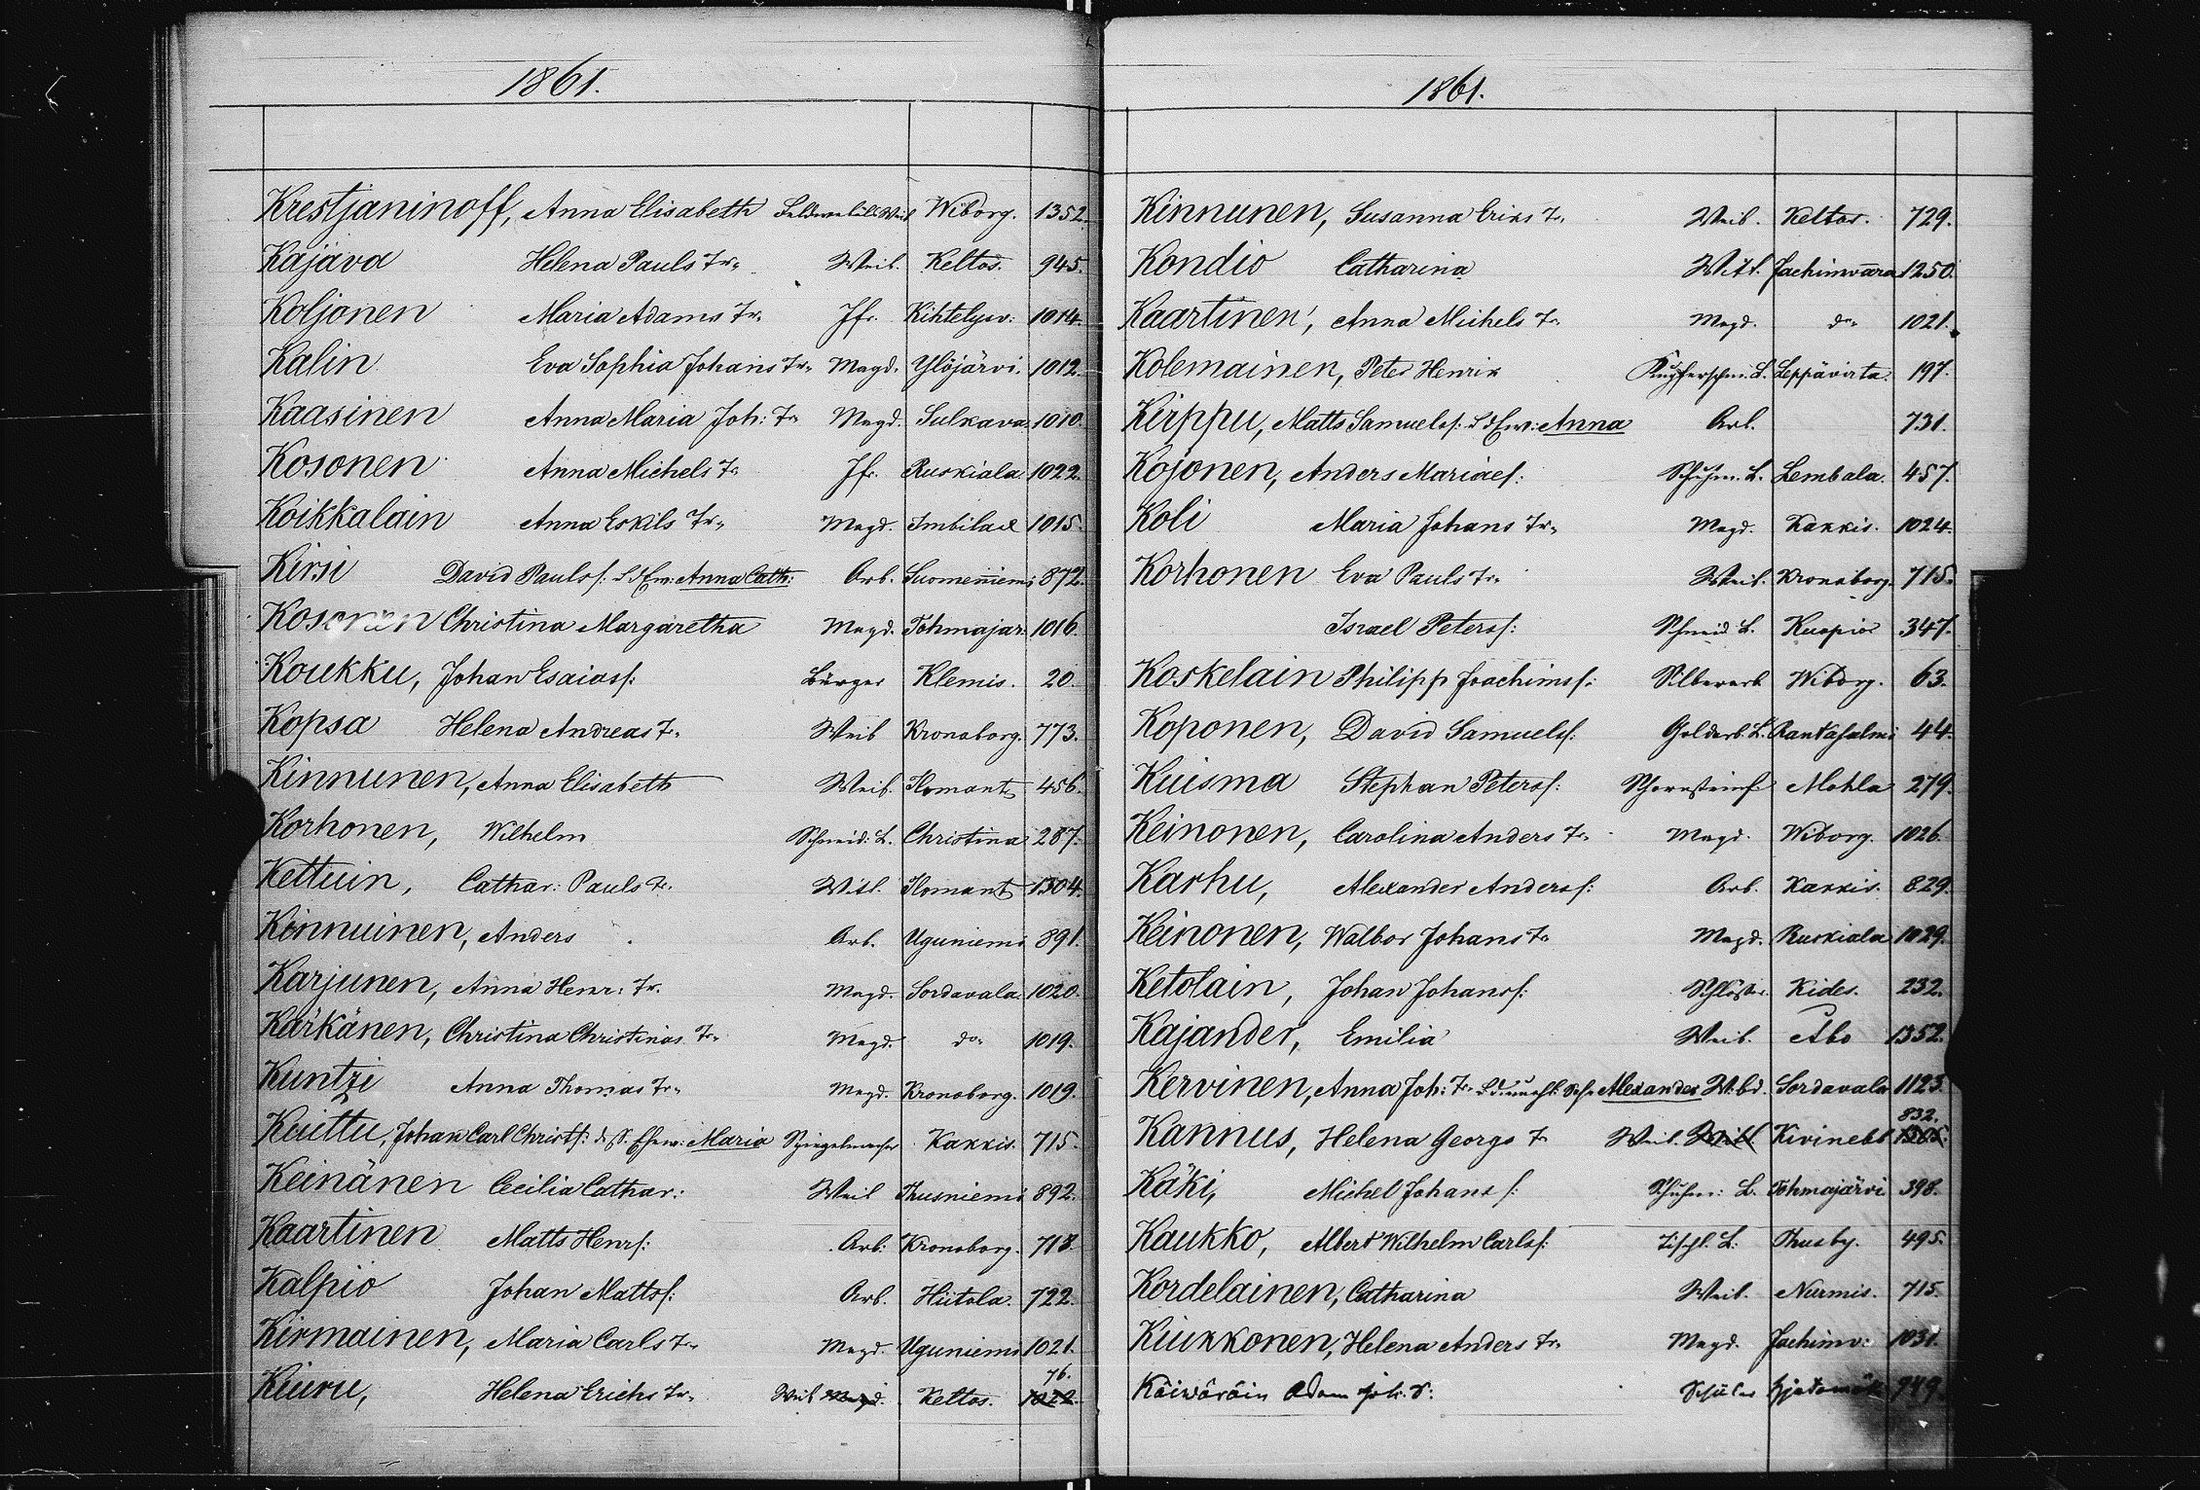 1861.
Krestjaninoff, Anna Elisabeth Feldwebels Weib Wiborg. 1352.
Kajava Helena Pauls Tr. Weib. Keltos. 945.
Koljonen Maria Adams Tr. Jfr. Kihtelysv: 1014.
Kalin Eva Sophia Johans Tr. Magd. Ylöjärvi. 1012.
Kaasinen Anna Maria Joh: Tr. Magd. Sulkava 1010.
Kosonen Anna Michels Tr. Jfr. Ruskiala 1022.
Koikkalain Anna Eskils Tr. Magd. Imbilax 1015.
Kirsi David Paulss: s. d. Ew: Anna Cath: Arb. Suomenniemi 872.
Kosonen Christina Margaretha Magd. Tohmajar. 1016.
Koukku, Johan Esaiass: Bürger Klemis. 20.
Kopsa Helena Andreas Tr. Weib Kronoborg. 773.
Kinnunen, Anna Elisabeth Weib. Ilomants 456.
Korhonen, Wilhelm Schmid: L. Christina 287.
Kettuin, Cathar: Pauls Tr. Witt. Ilomants 1304.
Kinnuinen, Anders Arb. Uguniemi 891.
Karjunen, Anna Henr: Tr. Magd. Sordavala 1020.
Karkänen, Christina Christinas Tr. Magd. do. 1019.
Kuntzi Anna Thomas Tr. Magd. Kronoborg. 1019.
Kuittu, Johan Carl Christ: Maria Spiegelmacher Kaxkis. 715.
Keinänen Cecilia Cathar: Weib Thusniemi 892.
Kaartinen Matts Henrs: Arb: Kronoborg. 718.
Kalpio Johan Mattss: Arb. Hiitola. 722.
Kirmainen, Maria Carls Tr. Magd. Uguniemi 1021.
Kiuru, Helena Erichs Tr. Weib Magd. Keltos. 76. 1022.
1861.
Kinnunen, Susanna Eriks Tr. Weib. Keltos. 729.
Kondio Catharina Witt. Jachimvara 1250.
Kaartinen, Anna Michels Tr. Magd. do. 1021.
Kolemainen, Peter Henrik Kupferschm. L. Leppävirta. 197.
Kirppu, Matts Samuelss: s. d. Ew: Anna Arb. 731.
Kojonen, Anders Mariaes: Schuhm. L. Lembala. 457.
Koli Maria Johans Tr. Magd. Kaxkis. 1024.
Korhonen Eva Pauls Tr. Weib. Kronoborg. 715.
Israel Peterss: Schneid L. Kuopio 347.
Koskelain Philipp Joachimss: Silberarb Wiborg. 63.
Koponen, David Samuelss: Goldarb. L. Rantasalmi 44.
Kuisma Stephan Peterss: Schornsteinf. Mohla 279.
Keinonen, Carolina Anders Tr. Magd. Wiborg. 1026.
Karhu, Alexander Anderss: Arb. Kaxkis. 829.
Keinonen, Walbor Johans Tr. Magd. Ruskiala 1029.
Ketolain, Johan Johanss: Schlosser. Kides. 232.
Kajander, Emilia Weib. Åbo 1352.
Kervinen, Anna Joh: Tr. s. d. unehl: Sohn Alexander W.bd. Sordavala 1123.
Kannus, Helena Georgs Tr. Weib. Witt. Kivinebb 832. 1305.
Käki, Michel Johans s: Schuhm: L. Tohmajärvi 398.
Kaukko, Albert Wilhelm Carlss: Tischl. L. Thusby. 495.
Kordelainen, Catharina Weib. Nurmis. 715
Kiukkonen, Helena Anders Tr. Magd. Jachimv: 1031.
Käiväräin Adam Joh. S. Schüler 749.